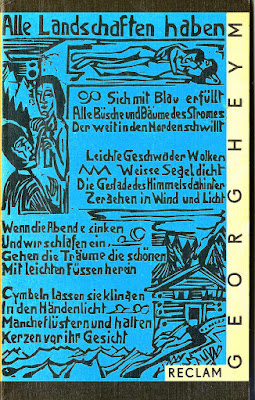 Alle Landschaften haben
Sich mit Blau erfüllt
Alle Büsche und Bäume des Stromes
Der weit in den Norden schwillt
Leichte Geschwader Wolken
Weisse Segel dicht
Die Gestade des Himmels dahinter
Zergehen in Wind und Licht
Wenn die Abende sinken
Und wir schlafen ein
Gehen die Träume die schönen
Mit leichten Füssen herein
Cymbeln lassen sie klingen
In den Händen licht
Manche flüstern und halten
Kerzen vor ihr Gesicht
RECLAM
GEORG HEYM